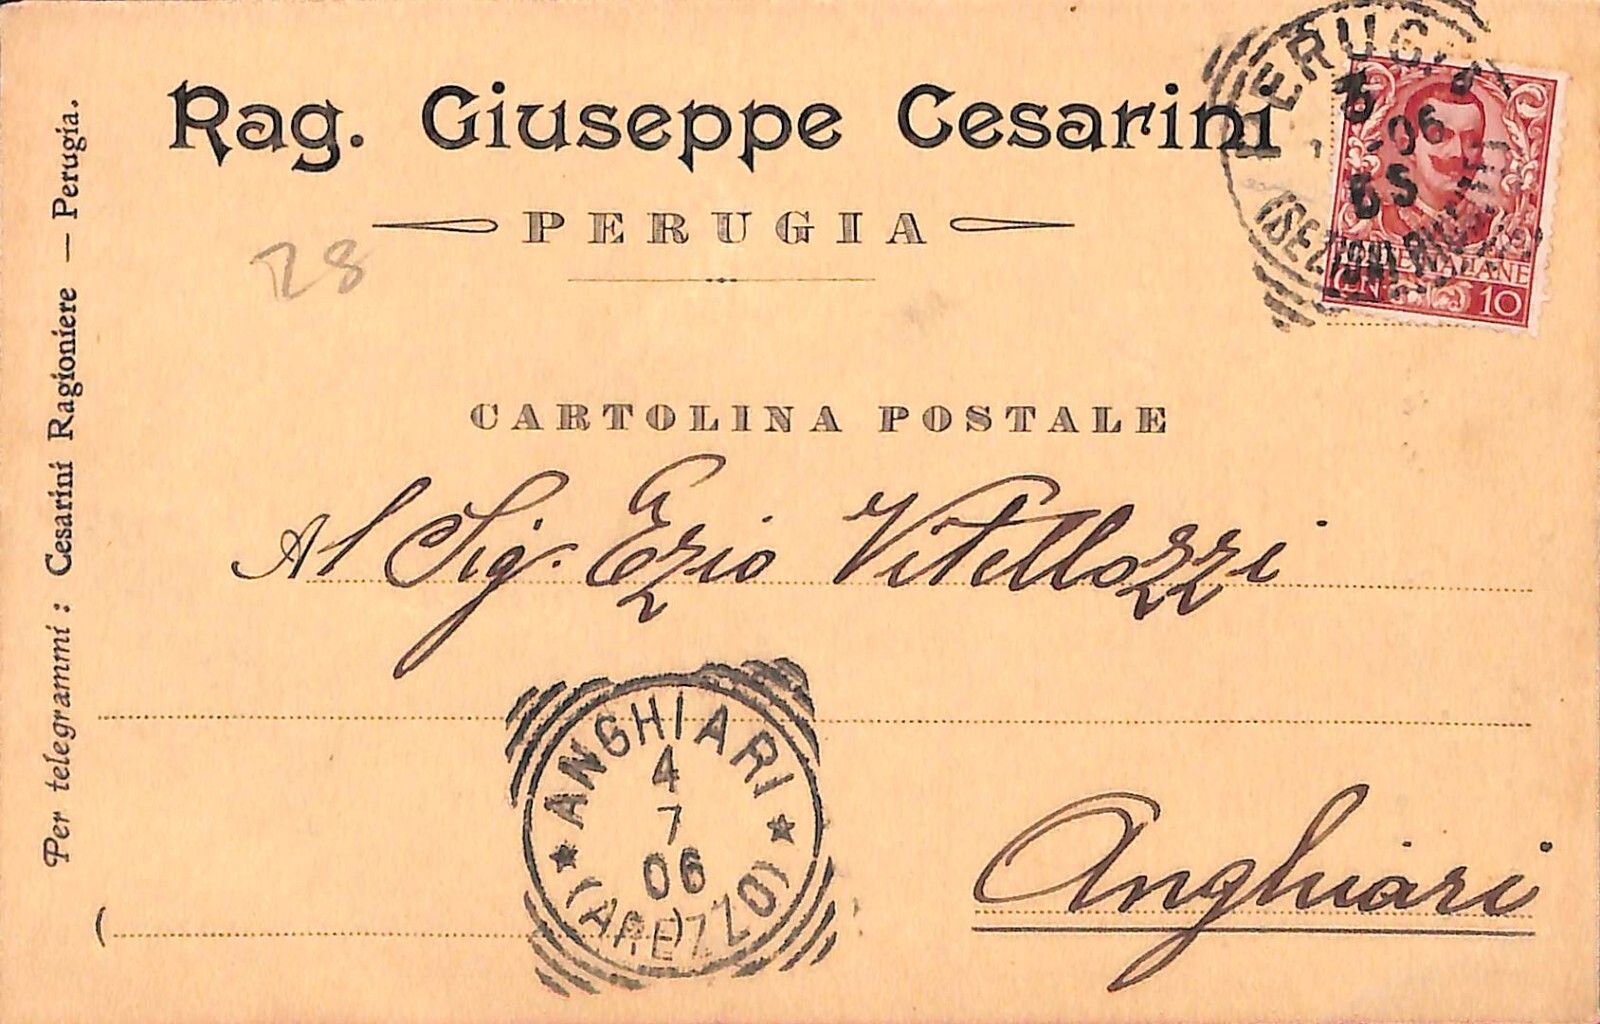 Rag. Giuseppe Cesarini
PERUGIA
Per telegrammi : Cesarini Ragioniere — Perugia.
28
PERUGIA
-06
POSTE ITALIANE
CEN. 10
CARTOLINA POSTALE
Al Sig. Ezio Vitellozzi
ANGHIARI
4
7
06
(AREZZO)
Anghiari